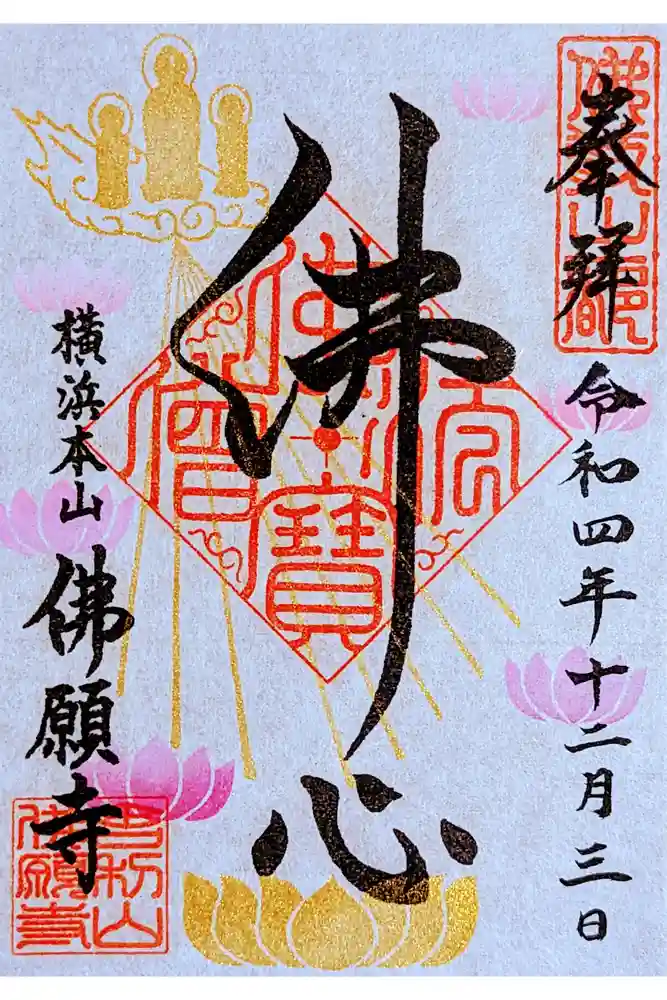 奉拝
令和四年十二月三日
佛心
佛法僧寶
横浜本山
佛願寺
舎利山
佛願寺